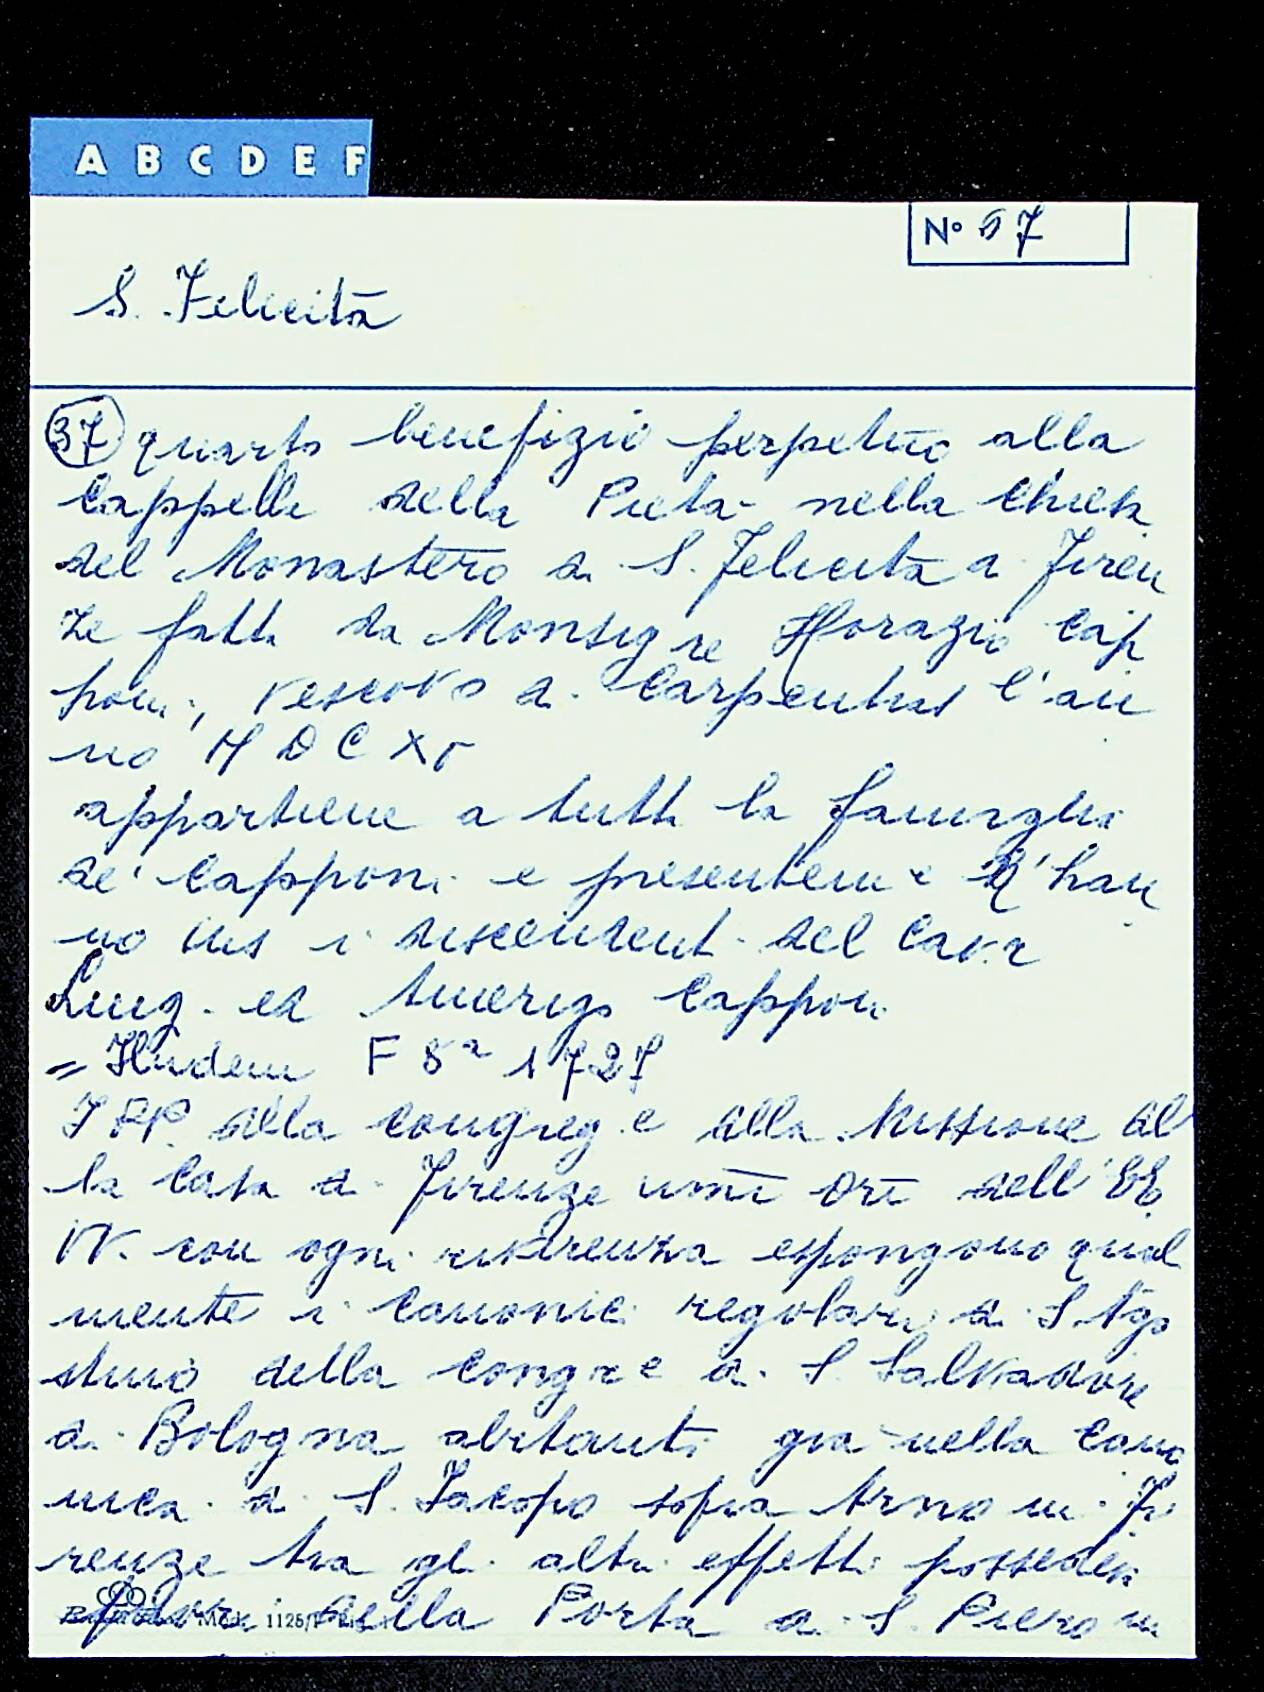 A B C D E F
N° 57
S. Felicità
37 quarto benefizio perpetuo alla
Cappella della Pietà nella Chiesa
del Monastero di S. Felicita a Firen
ze fatta da Monsig re Horazio Cap
poni, vescovo di Carpentras l'an
no MDCXV
appartiene a tutta la famiglia
de' Capponi e presenteme l'han
no i discendenti del Cav.r
Luig. ed Amerigo Capponi
= Ibidem F 8a 1727
I PP. della Congreg.e della Missione del
la Casa di Firenze umi Ori dell' EE.
VV. con ogni espongono qual
mente i canonici regolari di S. Ago
stino della Congre e di S. Salvadore
di Bologna abitanti già nella Cano
nica di S. Jacopo sopra Arno in Fi
renze tra gl. altri effetti possedev
fuori della Porta a S. Piero in
Mod. 1125/F